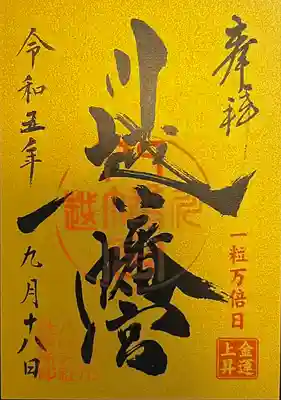 奉拝
一粒万倍日
金運
上昇
川越八幡宮
令和五年 九月十八日